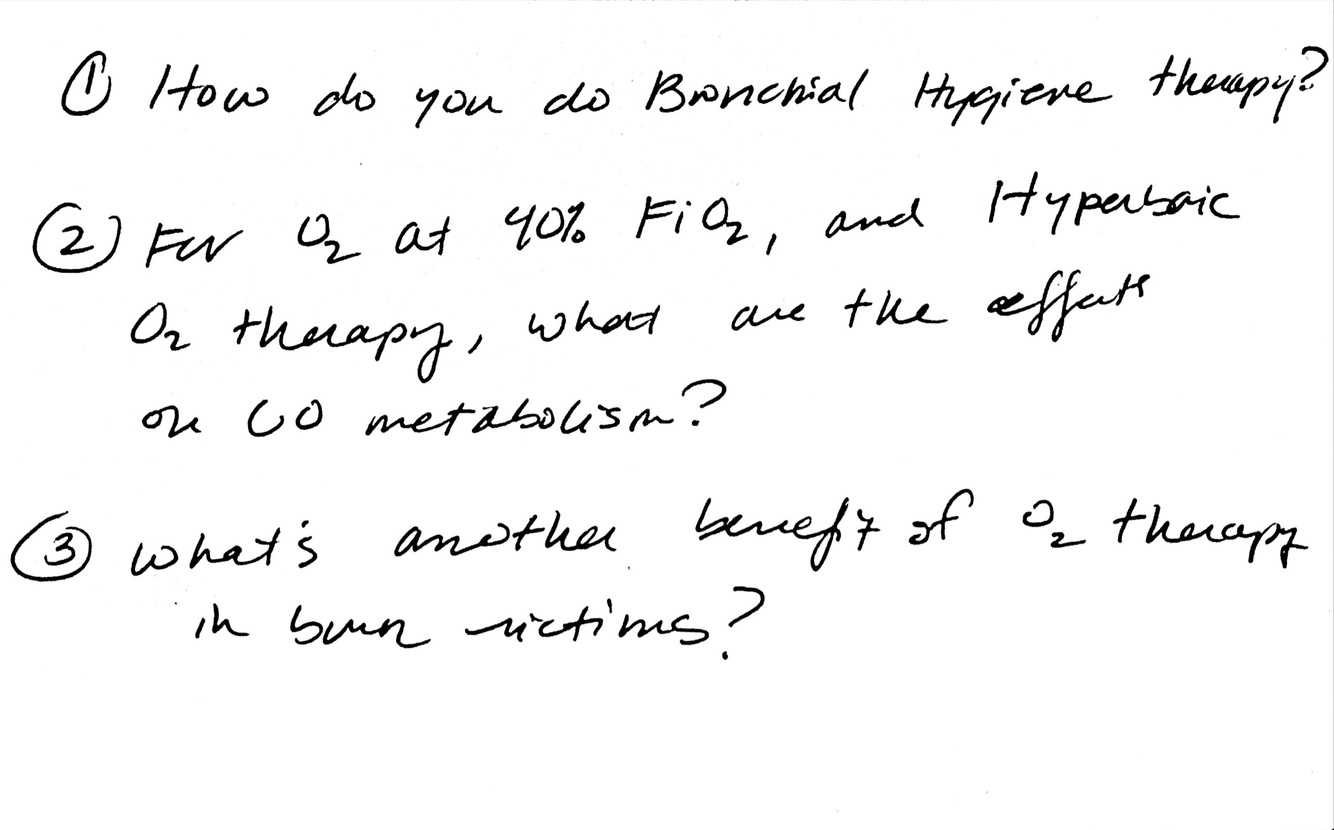 ① How do you do Bronchial Hygiene therapy?
② For O₂ at 40% FiO₂, and Hyperbaric
O₂ therapy, what are the effects
on CO metabolism?
③ what's another benefit of O₂ therapy
in burn victims?